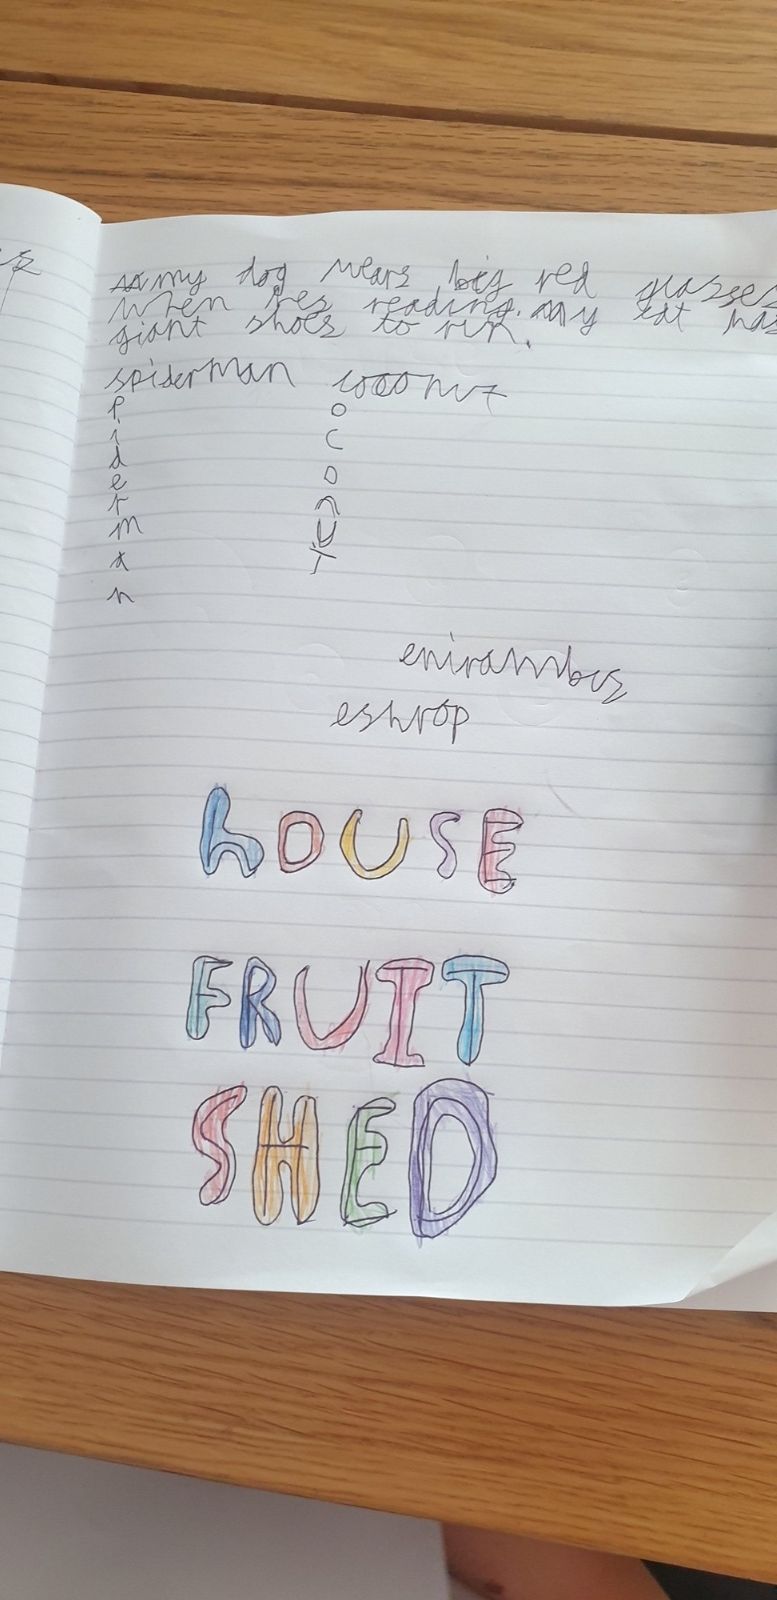 my dog wears big red glasses
when hes reading. my cat has
giant shoes to run.
spiderman coconut
p o
i c
d o
e n
r u
m t
a
n
enirambus
eshrop
hOUSE
FRUIT
SHED